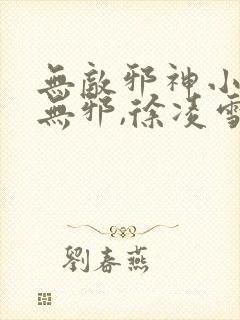 無敵邪神小
無邪,徐凌雪
劉春燕